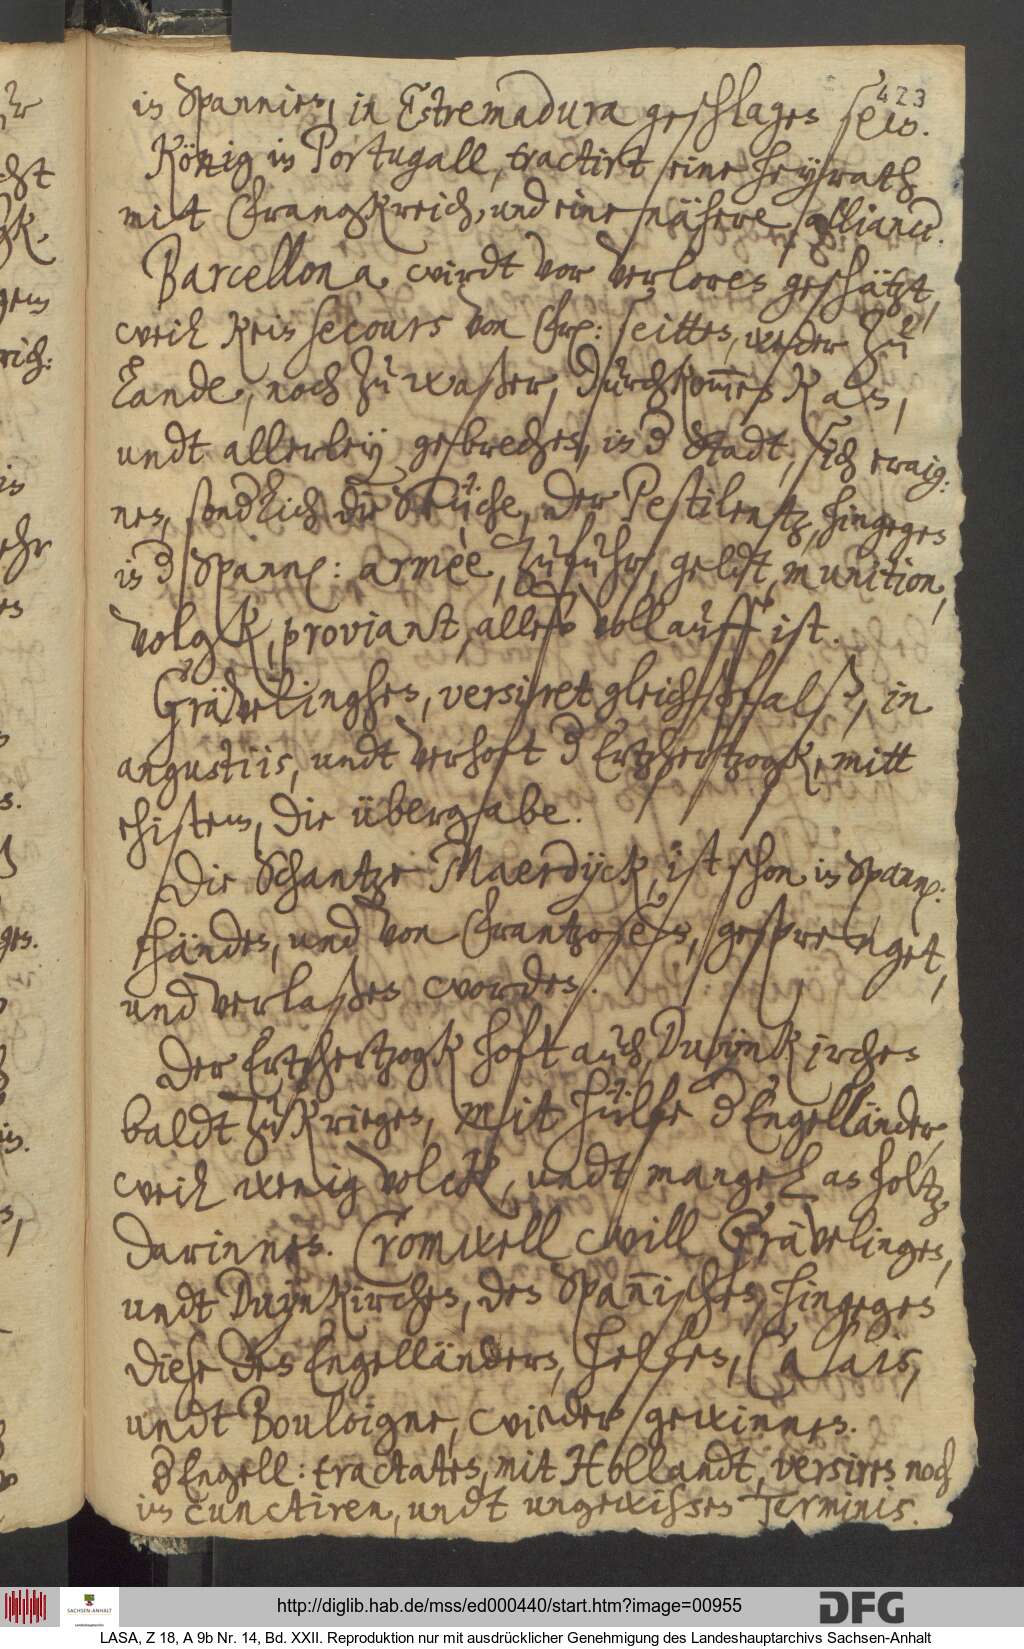 423
in Spannien, in Estremadura geschlagen sein.
König in Portugall, tractirt eine heyrath
mit Frangkreich, und eine nähere alliancé.
Barcellona wirdt vor verloren geschätzt,
weil kein secours von Frz: seitten, weder zu
Lande, noch zu waßer, durchkom̅en kan,
undt allerley gebrechen, in d Stadt, sich eraig:
nen, sond'lich die Seüche, der Pestilentz, hingegen
in d Spann: armèe, zufuhr, geldt, munition,
volgk, proviant, alleß vollauff ist.
Grävelinghen, versiret gleichsfalß, in
angustiis, undt verhoft d Ertzhertzogk, mitt
ehistem, die übergabe.
Die Schantze Maerdijck, ist schon in Spann:
händen, und von Frantzosen, gesprenget,
und verlaßen worden.
Der Ertzhertzogk hoft auch, Duynkirchen
baldt zu kriegen, mit hülfe d Engelländer,
weil wenig volck, undt mangel an holtz
darinnen. Cromwell will Grävelingen,
undt Duynkirchen, den Span̅ischen, hingegen
diese den Engelländern, helfen, Calais,
undt Bouloigne, wieder gewinnen.
d Engell: tractaten, mit Hollandt, versiren noch
in cunctiren, undt ungewißen Terminis.
http://diglib.hab.de/mss/ed000440/start.htm?image=00955
SACHSEN-ANHALT
DFG
LASA, Z 18, A 9b Nr. 14, Bd. XXII. Reproduktion nur mit ausdrücklicher Genehmigung des Landeshauptarchivs Sachsen-Anhalt